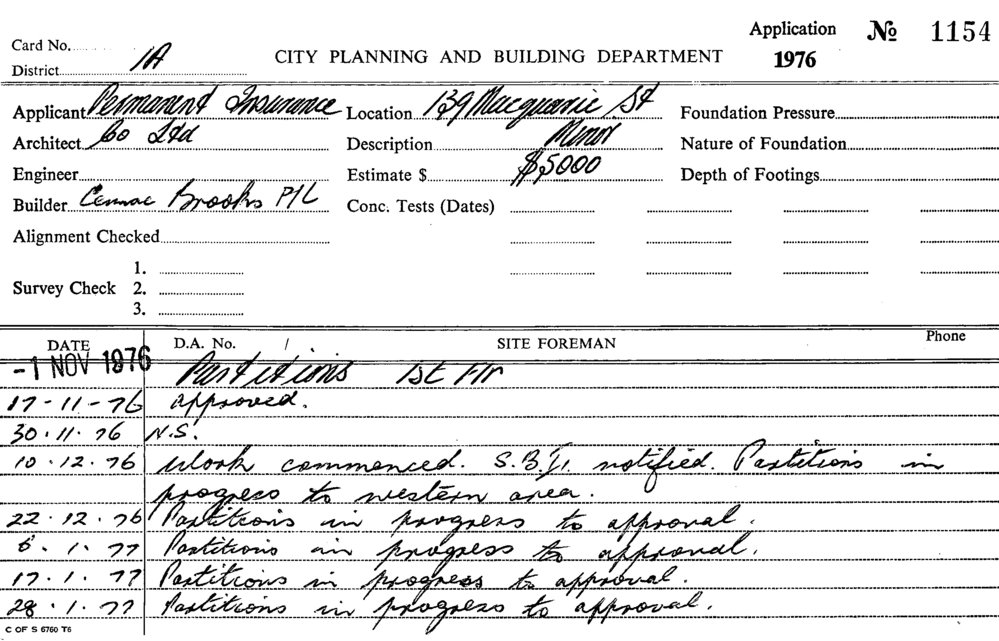 Application № 1154
1976
Card No.
District 1A
CITY PLANNING AND BUILDING DEPARTMENT
Applicant Permanent Insurance
Location 139 Macquarie St
Foundation Pressure
Architect Co Ltd
Description Minor
Nature of Foundation
Engineer
Estimate $ $5000
Depth of Footings
Builder Brooks P/L
Conc. Tests (Dates)
Alignment Checked
Survey Check 1.
2.
3.
DATE D.A. No. / SITE FOREMAN Phone
-1 NOV 1976 Partitions 1st Flr
17-11-76 approved.
30.11.76 N.S.
10.12.76 Work commenced. S.B.I. notified. Partitions in
progress to western area.
22.12.76 Partitions in progress to approval.
6.1.77 Partitions in progress to approval.
17.1.77 Partitions in progress to approval.
28.1.77 Partitions in progress to approval.
C OF S 6760 T6